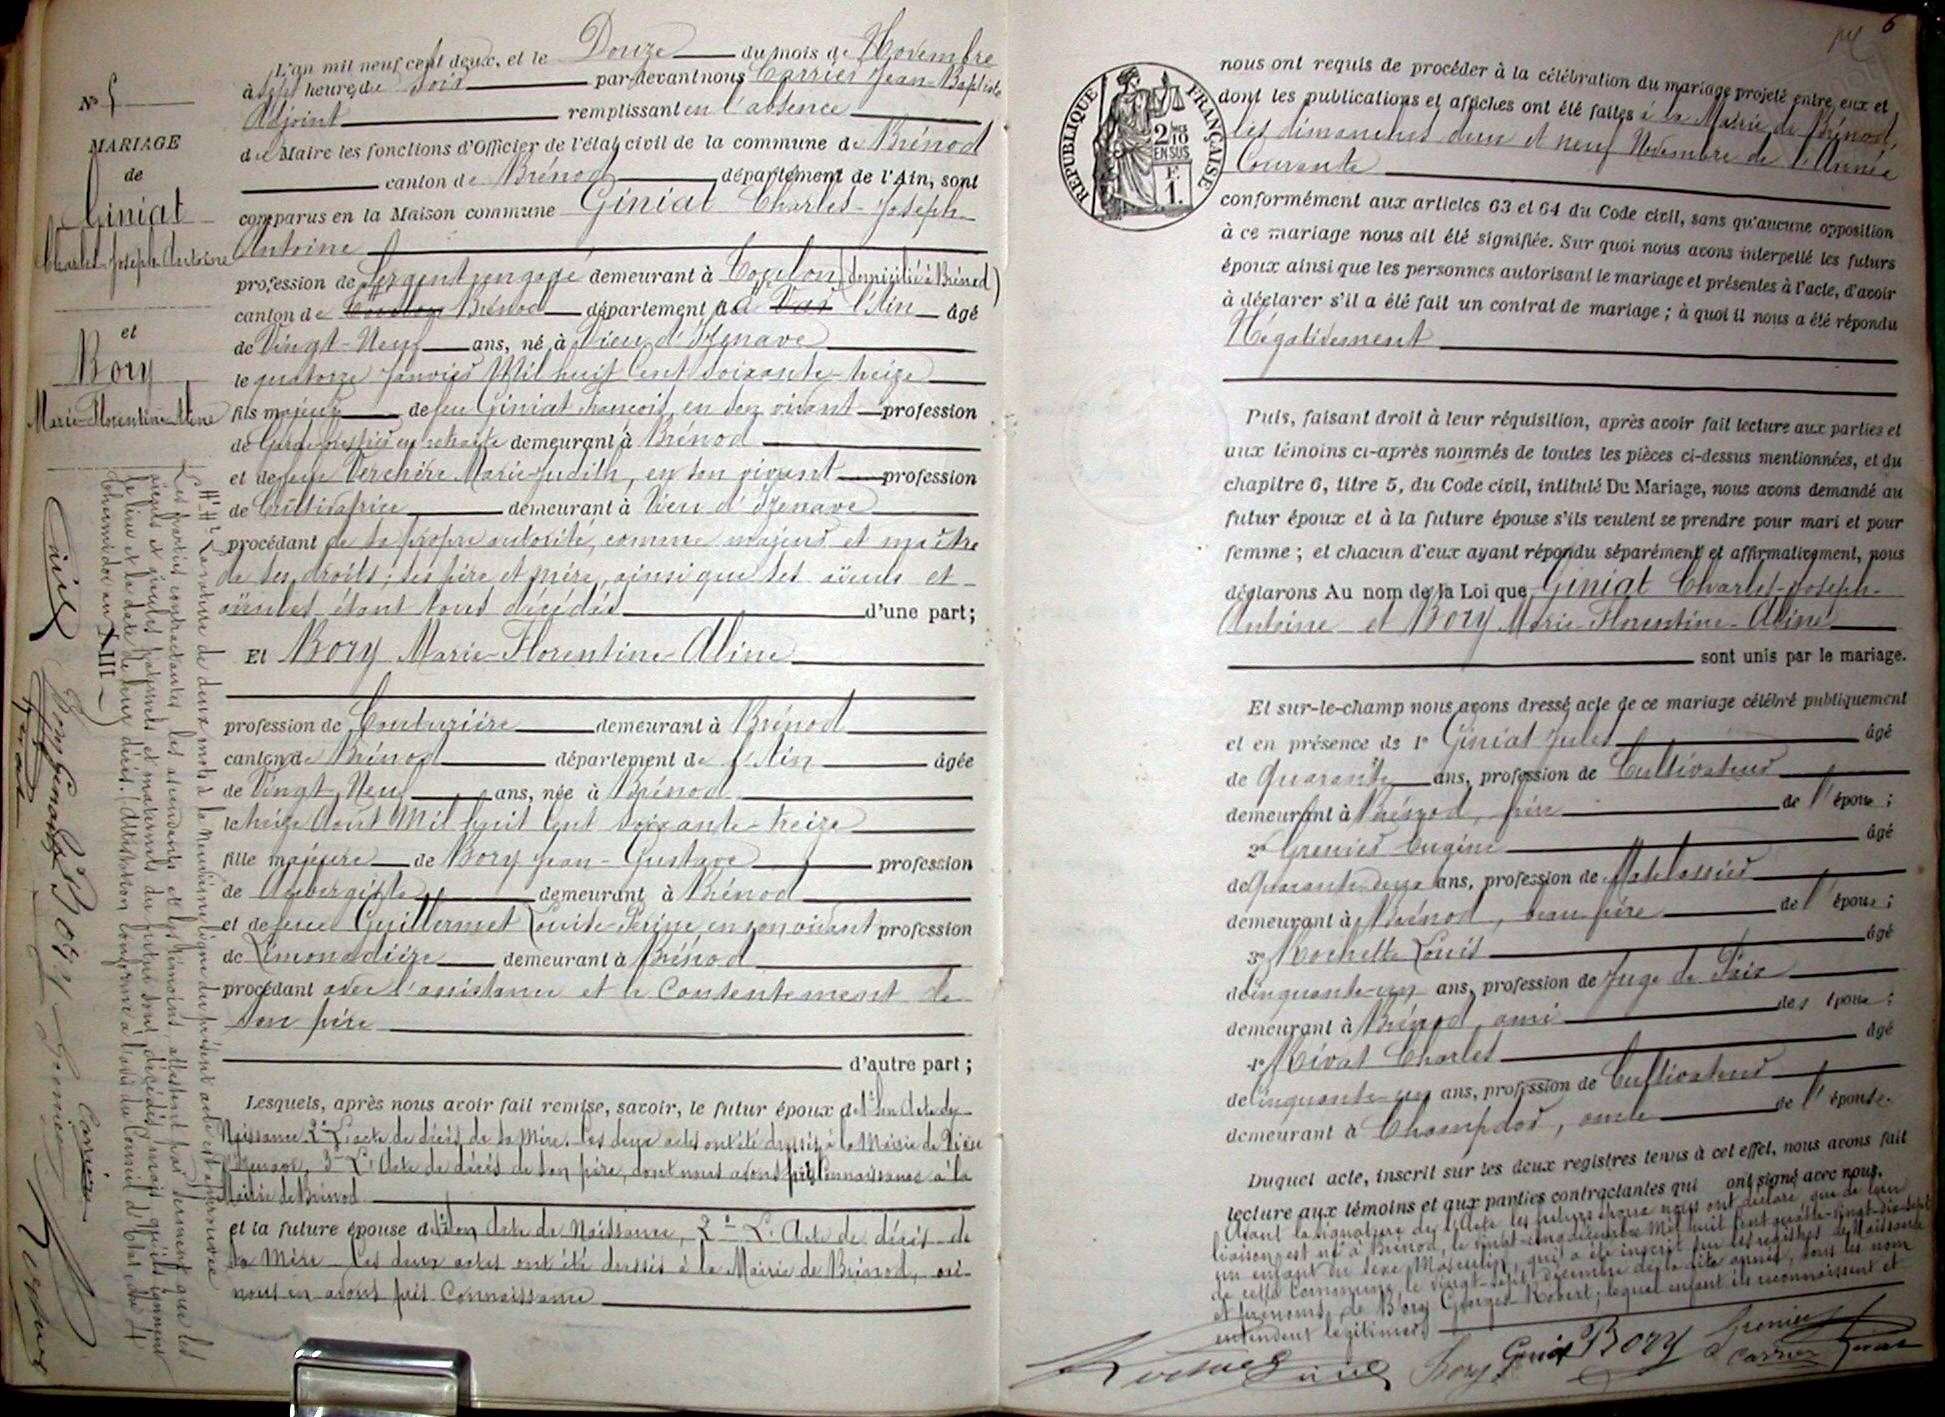 Nº 5
MARIAGE
de
Giniat
Charles-Joseph-Antoine
et
Bory
Marie-Florentine-Aline
L'an mil neuf cent deux, et le Douze du mois de Novembre
à sept heures de soir par-devant nous Carrier Jean-Baptiste
Adjoint remplissant en l'absence
du Maire les fonctions d'Officier de l'état civil de la commune de Brénod
canton de Brénod département de l'Ain, sont
comparus en la Maison commune Giniat Charles-Joseph-
Antoine
profession de Sergent rengagé demeurant à Toulon (domicilié à Brénod)
canton de Toulon Brénod département de Var l'Ain âgé
de Vingt-Neuf ans, né à Vieu d'Izenave
le quatorze Janvier Mil huit Cent soixante-treize
fils majeur de feu Giniat François, en son vivant profession
de Garde forestier en retraite demeurant à Brénod
et de feue Verchère Marie-Judith, en son vivant profession
de Cultivatrice demeurant à Vieu d'Izenave
procédant de sa propre autorité, comme majeur et maître
de ses droits; ses père et mère, ainsi que ses aïeuls et
aïeules étant tous décédés d'une part;
Et Bory Marie-Florentine-Aline
profession de Couturière demeurant à Brénod
canton de Brénod département de l'Ain âgée
de Vingt-Neuf ans, née à Brénod
le treize Août Mil huit Cent soixante-treize
fille majeure de Bory Jean-Gustave profession
de Aubergiste demeurant à Brénod
et de feue Guillermet Louise-Périne, en son vivant profession
de Limonadière demeurant à Brénod
procédant avec l'assistance et le Consentement de
son père
d'autre part;
Lesquels, après nous avoir fait remise, savoir, le futur époux de 1º Son Acte de
Naissance 2º L'acte de décès de sa Mère. Les deux actes ont été dressés à la Mairie de Vieu
d'Izenave, 3º L'Acte de décès de son père, dont nous avons pris Connaissance à la
Mairie de Brénod
et la future épouse de 1º Son Acte de Naissance, 2º L'Acte de décès de
sa Mère Ces deux actes ont été dressés à la Mairie de Brénod, où
nous en avons pris Connaissance
La rature de deux mots à la Neuvième ligne du présent acte est approuvée
Les parties contractantes, les ascendants et les témoins, attestent par serment que les
aïeuls et aïeules paternels et maternels du futur sont décédés, mais qu'ils ignorent
le lieu et la date de leur décès. (Attestation conforme à l'avis du Conseil d'Etat du 4
thermidor an XIII)
6
RÉPUBLIQUE FRANÇAISE
2 10
EN SUS
F.
1.
nous ont requis de procéder à la célébration du mariage projeté entre eux et
dont les publications et affiches ont été faites à la Mairie de Brénod,
les dimanches deux et neuf Novembre de l'Année
Courante
conformément aux articles 63 et 64 du Code civil, sans qu'aucune opposition
à ce mariage nous ait été signifiée. Sur quoi nous avons interpellé les futurs
époux ainsi que les personnes autorisant le mariage et présentes à l'acte, d'avoir
à déclarer s'il a été fait un contrat de mariage; à quoi il nous a été répondu
Négativement
Puis, faisant droit à leur réquisition, après avoir fait lecture aux parties et
aux témoins ci-après nommés de toutes les pièces ci-dessus mentionnées, et du
chapitre 6, titre 5, du Code civil, intitulé Du Mariage, nous avons demandé au
futur époux et à la future épouse s'ils veulent se prendre pour mari et pour
femme; et chacun d'eux ayant répondu séparément et affirmativement, nous
déclarons Au nom de la Loi que Giniat Charles-Joseph-
Antoine et Bory Marie-Florentine-Aline
sont unis par le mariage.
Et sur-le-champ nous avons dressé acte de ce mariage célébré publiquement
et en présence de 1º Giniat Jules âgé
de Quarante ans, profession de Cultivateur
demeurant à Brénod, frère de l'époux;
2º Grenier Eugène âgé
de Quarante-deux ans, profession de Matelassier
demeurant à Brénod, beau frère de l'époux;
3º Rochette Louis âgé
de Cinquante-un ans, profession de Juge de Paix
demeurant à Brénod, ami des époux;
4º Rivat Charles âgé
de Cinquante-un ans, profession de Cultivateur
demeurant à Champdor, oncle de l'épouse.
Duquel acte, inscrit sur les deux registres tenus à cet effet, nous avons fait
lecture aux témoins et aux parties contractantes qui ont signé avec nous.
Avant la signature de l'Acte les futurs époux nous ont déclaré que de leur
liaison est né à Brénod, le vingt-cinq décembre Mil huit Cent quatre-vingt-dix-sept
un enfant du sexe Masculin, qui a été inscrit sur les registres de Naissance
de cette Commune, le vingt-sept décembre de la dite année, sous les nom
et prénoms de Bory Georges-Robert; lequel enfant ils reconnaissent et
entendent légitimer
Giniat Bory Grenier
Carrier Rivat